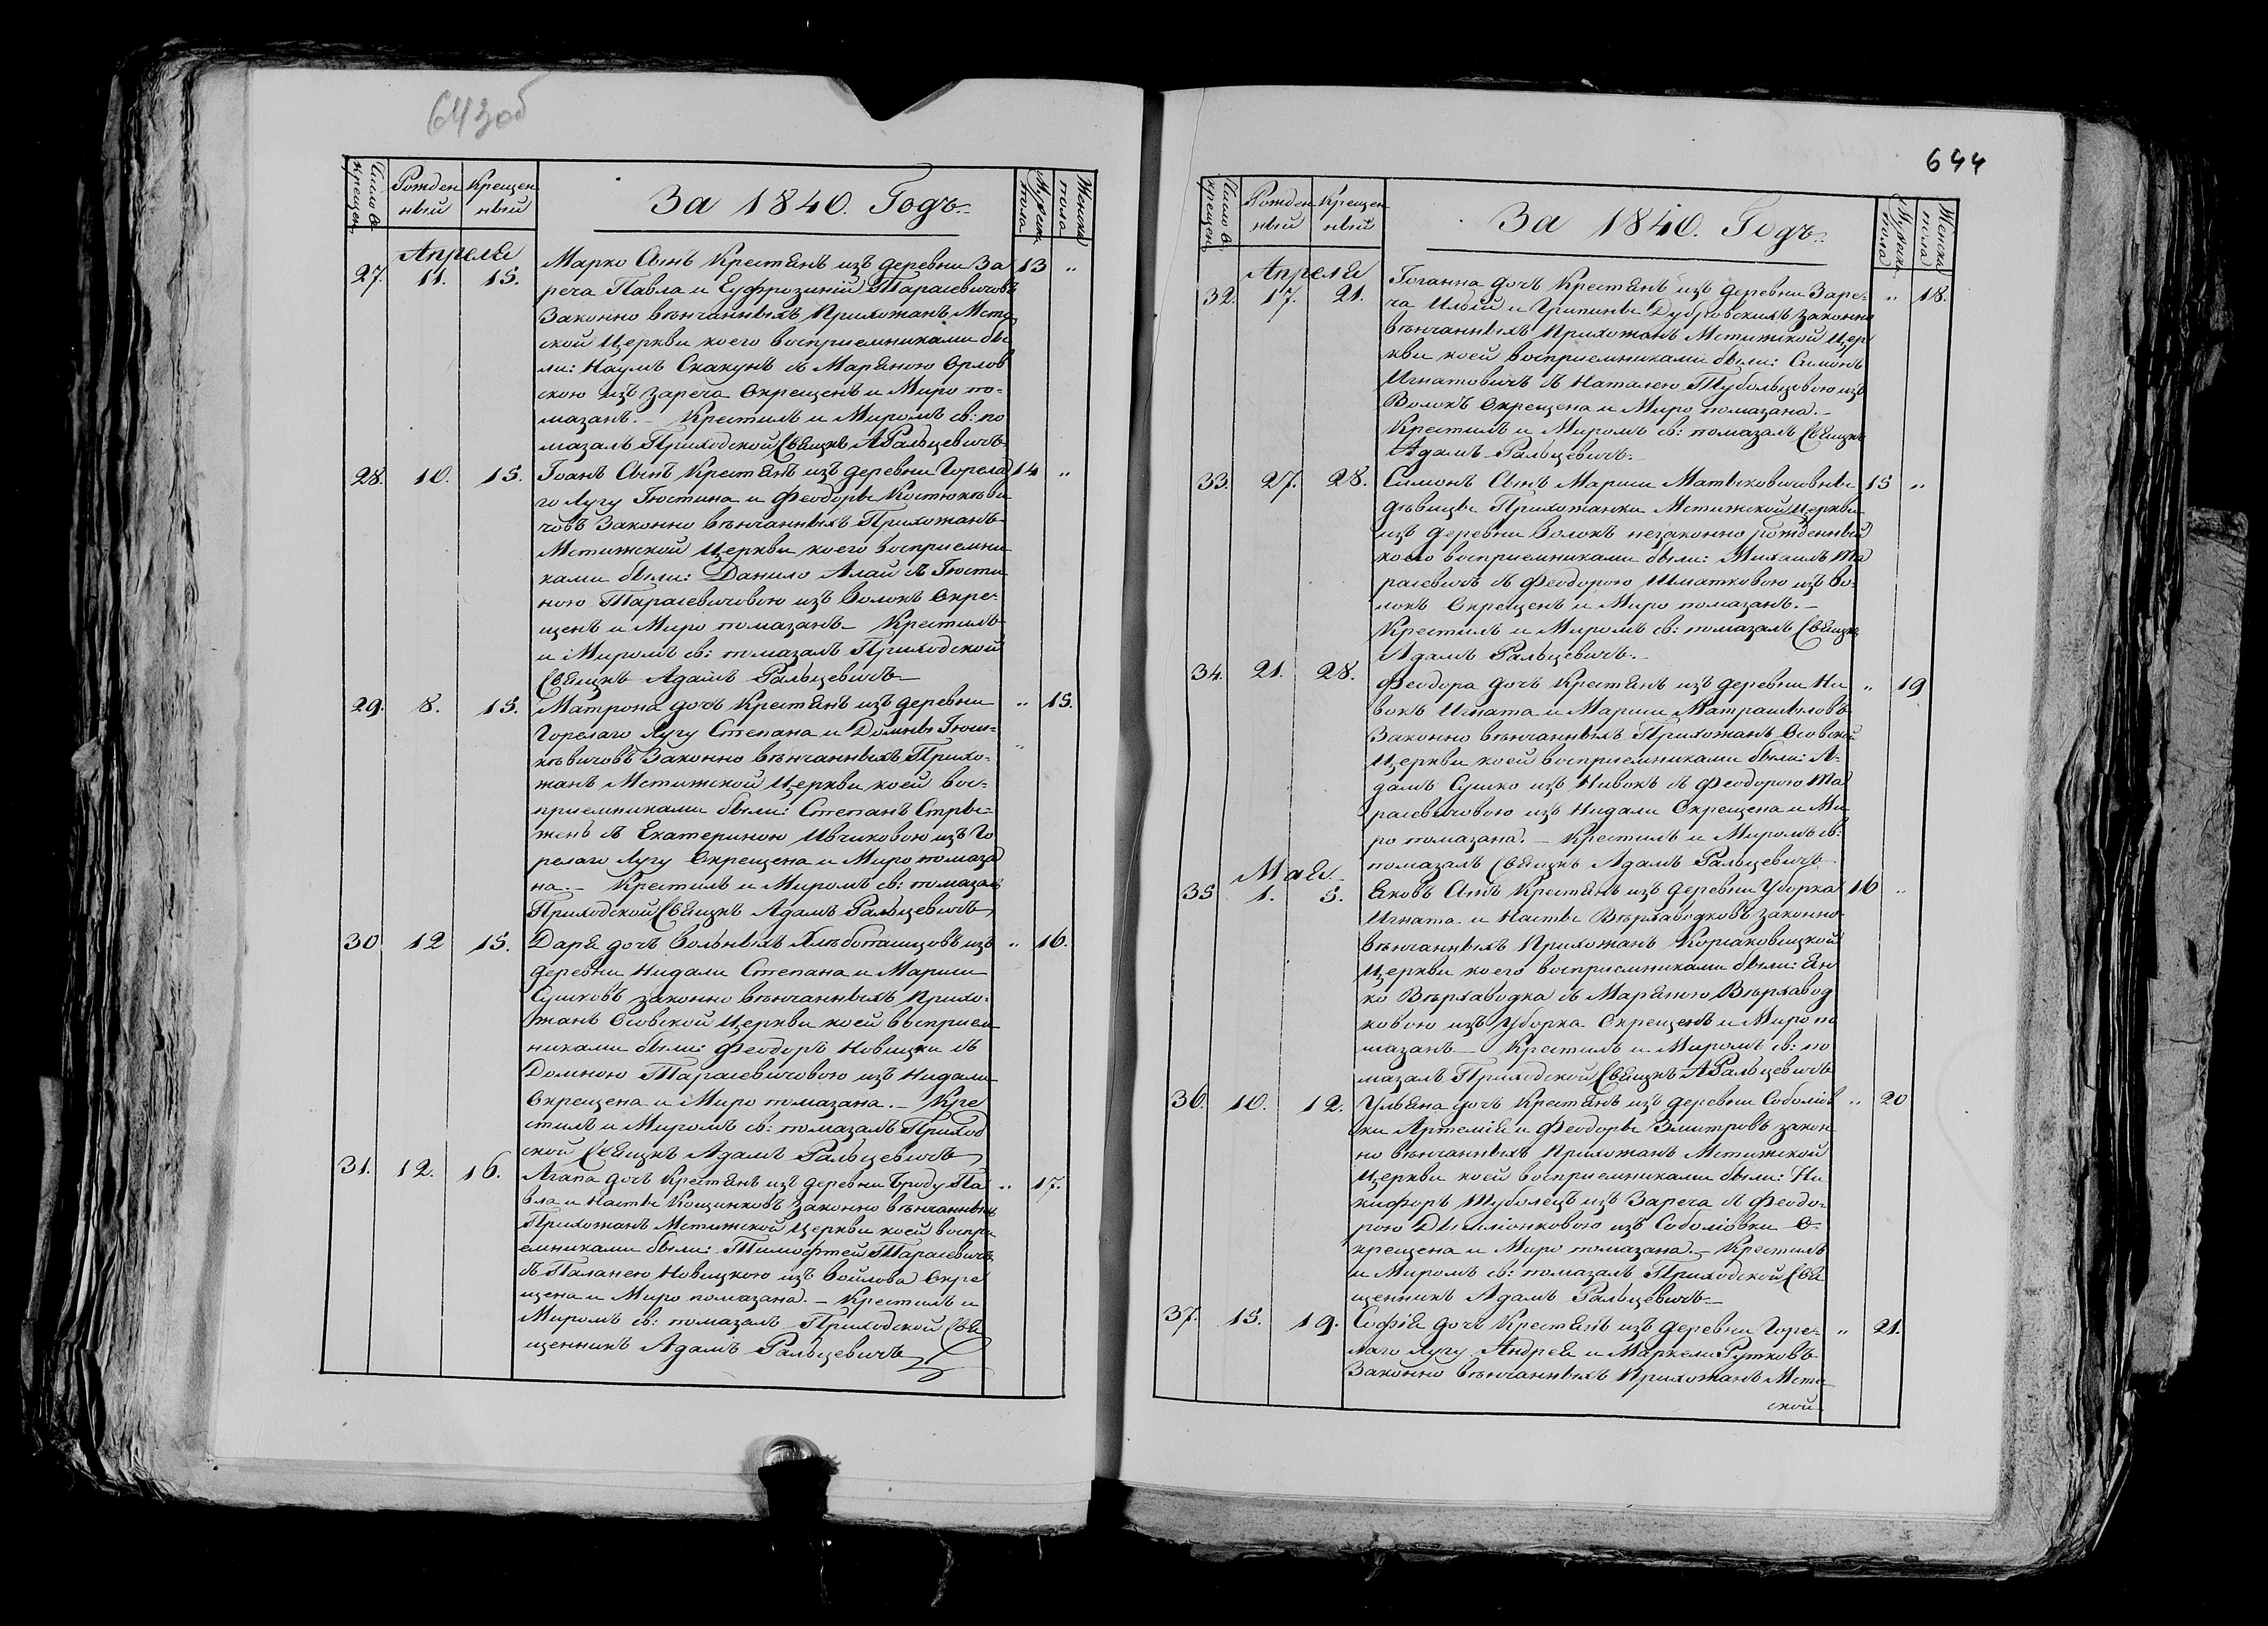 643об
Число кре­щен. Рожден Крещен За 1840. Годъ. Мужеск. Женска
ный ный пола пола
Апреля
27. 11. 15. Марко Сынъ Крестянъ изъ деревни За 13 „
реча Павла и Еуфрозиніи Тарасевичовъ
Законно вѣнчанныхъ Прихожанъ Мсти
ской Церкви коего восприемниками бы
ли: Наумъ Скакунъ съ Маряною Орлов
скою изъ Зареча Окрещенъ и Миро по-
мазанъ. – Крестилъ и Миромъ св: по
мазалъ Приходской Свящнъ АРальцевичъ
28. 10. 15. Іоанъ Сынъ Крестянъ изъ деревни Горела 14 „
го Лугу Іюстина и Феодоры Костюкѣви
човъ Законно вѣнчанныхъ Прихожанъ
Мстижской Церкви коего восприемни
ками были: Данило Алай съ Іюсти
ною Тарасевичовою изъ Волокъ Окре-
щенъ и Миро помазанъ – Крестилъ
и Миромъ св: помазалъ Приходской
Свящнъ Адамъ Ральцевичъ
29. 8. 15. Матрона дочъ Крестянъ изъ деревни „ 15.
Горелаго Лугу Степана и Домны Гюш-
кѣвичовъ Законно вѣнчанныхъ Прихо-
жанъ Мстижской Церкви коей вос-
приемниками были: Степанъ Стры-
женъ съ Екатериною Ивчиковою изъ Го
релаго Лугу Окрещена и Миро помаза
на. – Крестилъ и Миромъ св: помазалъ
Приходской Свящнъ Адамъ Ральцевичъ
30 12 15. Даря дочъ вольныхъ Хлѣбопашцовъ изъ „ 16.
деревни Нидали Степана и Марии
Сушковъ законно вѣнчанныхъ Прихо-
жанъ Осовской Церкви коей восприем
никами были: Феодоръ Новицки съ
Домною Тарасевичовою изъ Нидали
Окрещена и Миро помазана. – Кре
стилъ и Миромъ св: помазалъ Приход
ской Свящнъ Адамъ Ральцевичъ
31. 12. 16. Агапа дочъ Крестянъ изъ деревни Броду Па „ 17.
вла и Насты Кощинковъ Законно вѣнчанныхъ
Прихожанъ Мстижской Церкви коей воспри
емниками были: Тимофтей Тарасевичъ
съ Паланею Новицкою изъ Войлова Окре
щена и Миро помазана. – Крестилъ и
Миромъ св: помазалъ Приходской Свя
щенникъ Адамъ Ральцевичъ
644
Число кре­щен. Рожден Крещен За 1840. Годъ. Мужеск. Женска
ный ный пола пола
Апреля
32. 17. 21. Іоганна дочъ Крестянъ изъ деревни Заре- „ 18.
ча Ильи и Грипины Дубровскихъ законно
вѣнчанныхъ Прихожанъ Мстижской Цер
кви коей восприемниками были: Симонъ
Игнатовичъ съ Наталею Тубольцовою изъ
Волокъ Окрещена и Миро помазана. –
Крестилъ и Миромъ св: помазалъ Свящнъ
Адамъ Ральцевичъ.
33. 27. 28. Симонъ Сынъ Марии Матысковичовны 15 „
дѣвицы Прихожанки Мстижской Церкви
изъ деревни Волокъ незаконно рожденный
коего восприемниками были: Михаилъ Та
расевичъ съ Феодорою Шматковою изъ Во-
локъ Окрещенъ и Миро помазанъ. –
Крестилъ и Миромъ св: помазалъ Свящнъ
Адамъ Ральцевичъ.
34. 21. 28. Феодора дочъ Крестянъ изъ деревни Ни „ 19
вокъ Игната и Марии Матрашыловъ
Законно вѣнчанныхъ Прихожанъ Осовской
Церкви коей восприемниками были: А-
дамъ Сушко изъ Нивокъ съ Феодорою Та
расевичовою изъ Нидали Окрещена и Ми
ро помазана. – Крестилъ и Миромъ св:
помазалъ Свящнъ Адамъ Ральцевичъ
Мая
35 1. 5. Яковъ Сынъ Крестянъ изъ деревни Уборка 16 „
Игната и Насты Вѣрхаводковъ законно
вѣнчанныхъ Прихожанъ Корсаковицкой
Церкви коего восприемниками были: Ян
ко Вѣрхаводка съ Маряною Вѣрхавод
ковою изъ Уборка Окрещенъ и Миро по
мазанъ – Крестилъ и Миромъ св: по
мазалъ Приходской Свящнъ АРальцевичъ
36. 10. 12. Ульяна дочъ Крестянъ изъ деревни Соболіов „ 20
ки Артемія и Феодоры Змитровъ закон
но вѣнчанныхъ Прихожанъ Мстижской
Церкви коей восприемниками были: Ни
кифоръ Туболецъ изъ Зареча съ Феодо-
рою Дымліонковою изъ Соболіовки О-
крещена и Миро помазана. – Крестилъ
и Миромъ св: помазалъ Приходской Свя
щенникъ Адамъ Ральцевичъ –
37. 15. 19. Софія дочъ Крестянъ изъ деревни Горе- „ 21.
лаго Лугу Андрея и Маркели Рутковъ
Законно вѣнчанныхъ Прихожанъ Мсти
ской